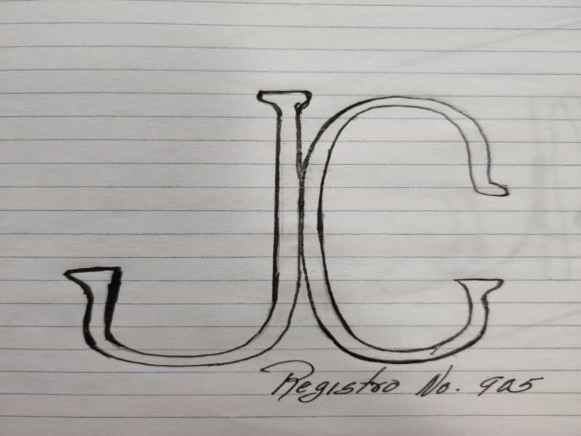 JC
Registro No. 905